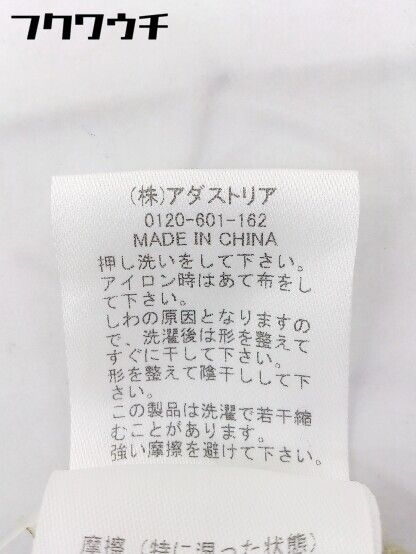 フクワウチ
(株)アダストリア
0120-601-162
MADE IN CHINA
押し洗いをして下さい。
アイロン時はあて布をし
て下さい。
しわの原因となりますの
で、洗濯後は形を整えて
すぐに干して下さい。
形を整えて陰干しして下
さい。
この製品は洗濯で若干縮
むことがあります。
強い摩擦を避けて下さい。
摩擦(特に湿った状態)